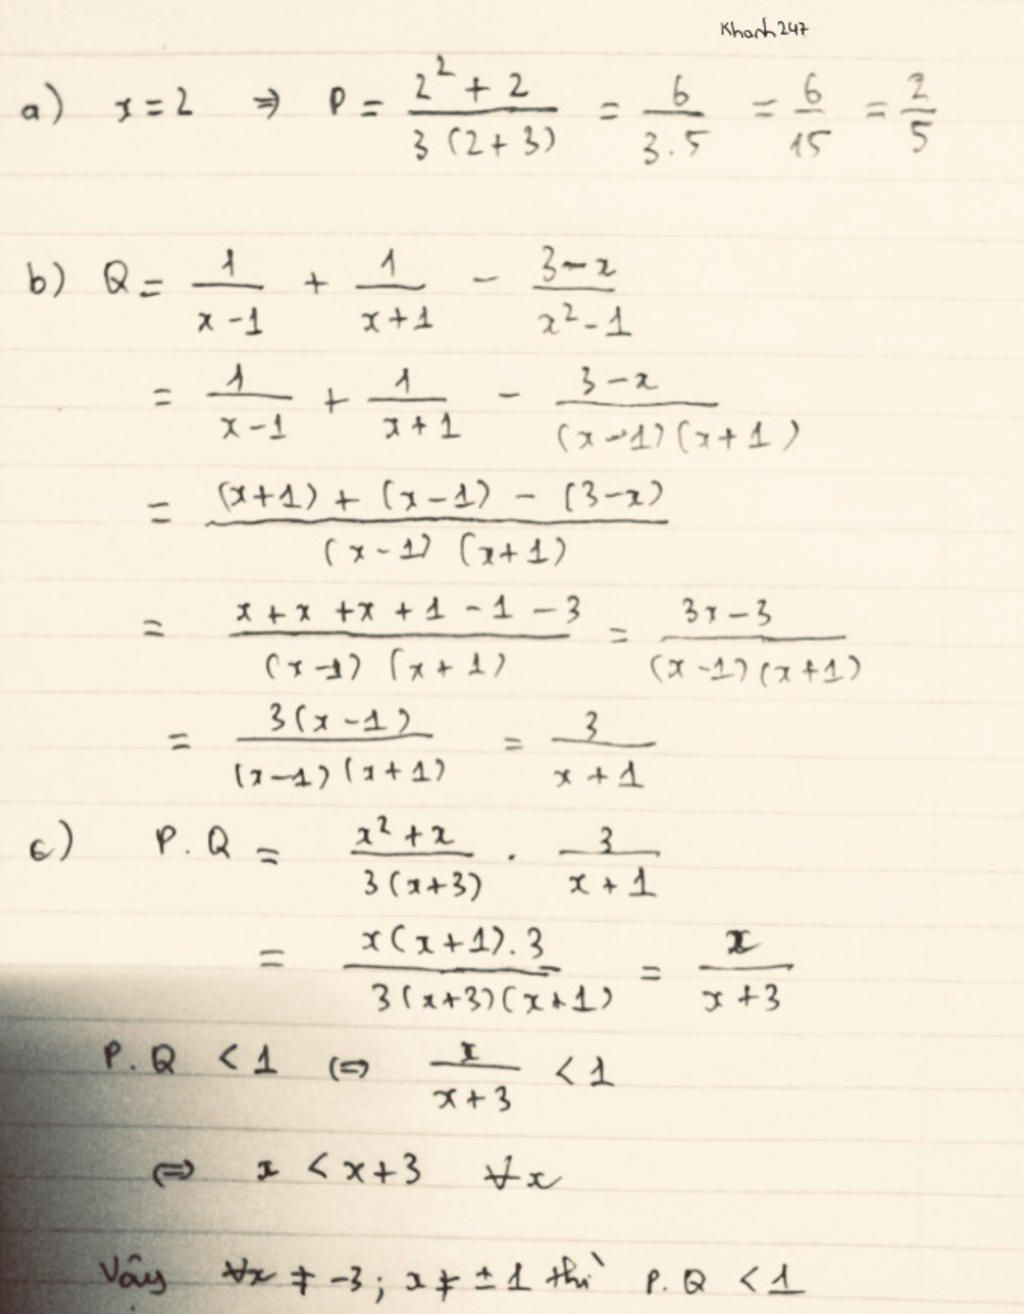 Khanh247
a) x = 2 ⇒ P = (2² + 2)/(3(2+3)) = 6/(3.5) = 6/15 = 2/5
b) Q = 1/(x-1) + 1/(x+1) - (3-x)/(x²-1)
= 1/(x-1) + 1/(x+1) - (3-x)/((x-1)(x+1))
= ((x+1) + (x-1) - (3-x))/((x-1)(x+1))
= (x + x + x + 1 - 1 - 3)/((x-1)(x+1)) = (3x-3)/((x-1)(x+1))
= 3(x-1)/((x-1)(x+1)) = 3/(x+1)
c) P.Q = (x²+x)/(3(x+3)) . 3/(x+1)
= (x(x+1).3)/(3(x+3)(x+1)) = x/(x+3)
P.Q < 1 ⇔ x/(x+3) < 1
⇔ x < x+3 ∀x
Vậy ∀x ≠ -3; x ≠ ±1 thì P.Q < 1